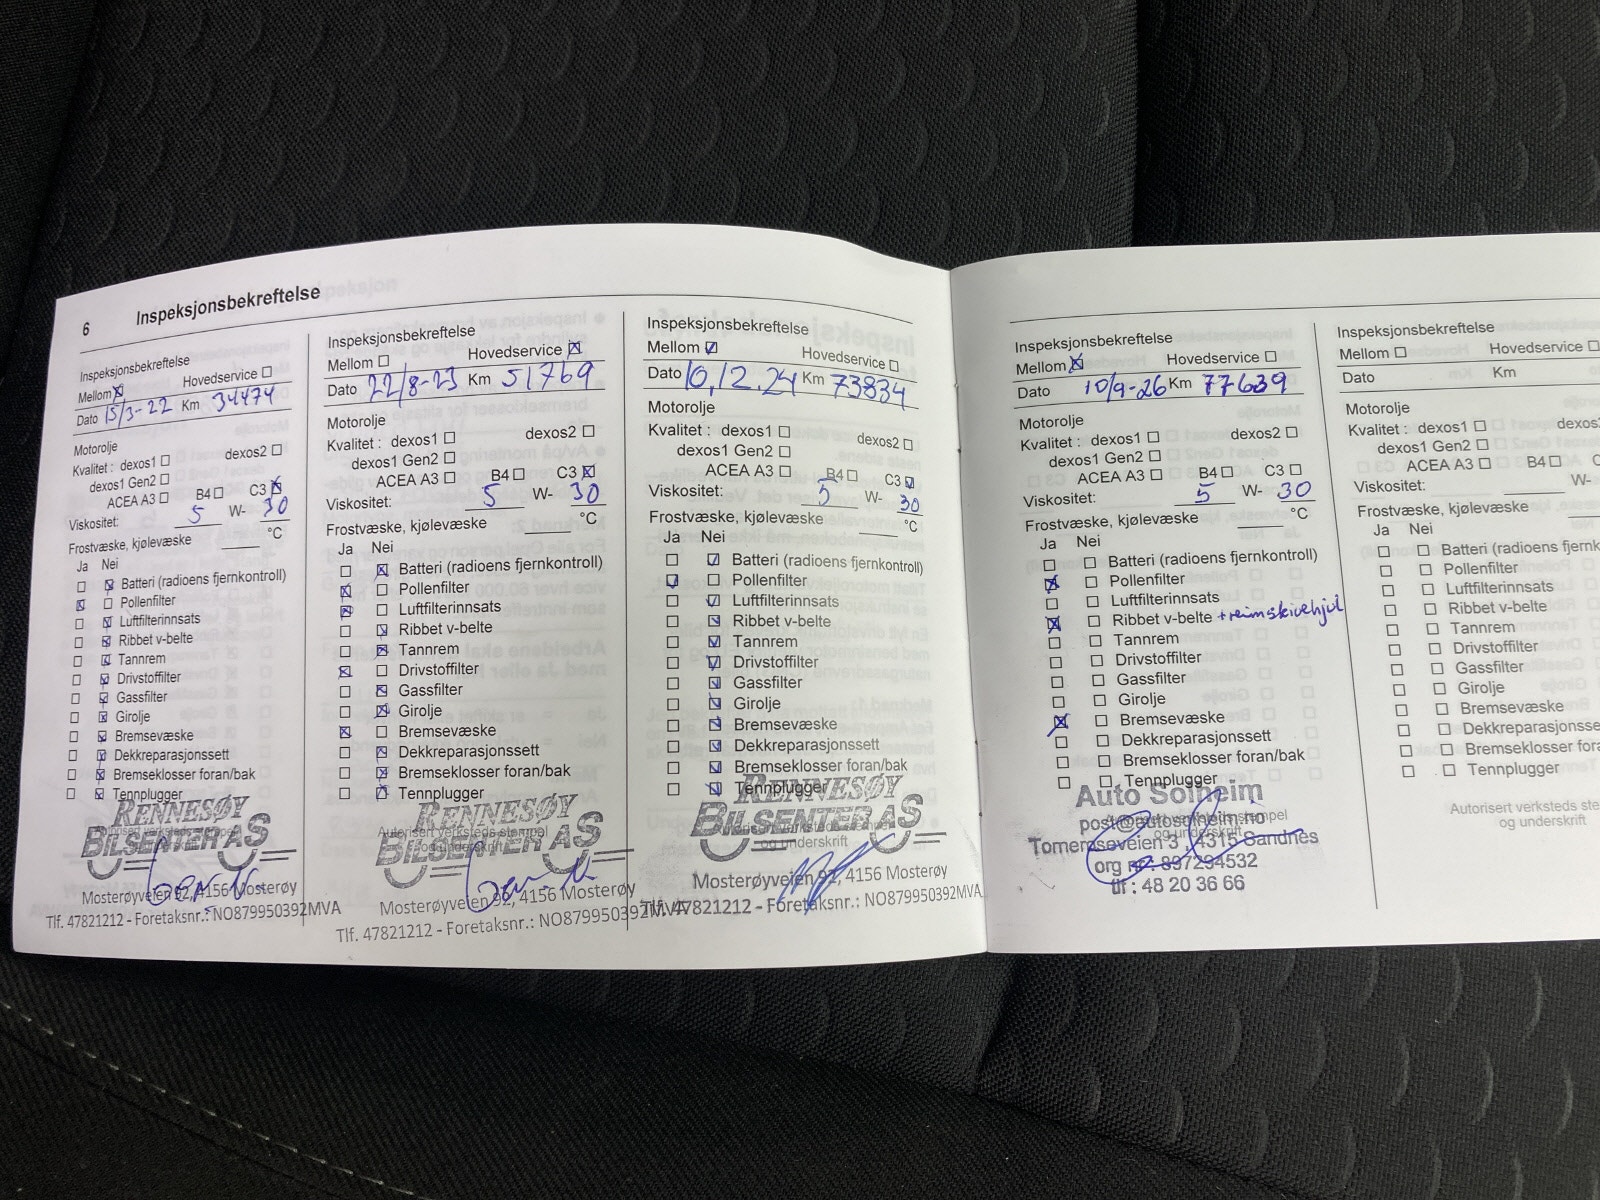 6 Inspeksjonsbekreftelse
Inspeksjonsbekreftelse
Mellom ☒ Hovedservice ☐
Dato 15/3-22 Km 34474
Motorolje
Kvalitet : dexos1 ☐ dexos2 ☐
dexos1 Gen2 ☐
ACEA A3 ☐ B4 ☐ C3 ☒
Viskositet: 5 W- 30
Frostvæske, kjølevæske ____ °C
Ja Nei
☐ ☒ Batteri (radioens fjernkontroll)
☒ ☐ Pollenfilter
☐ ☒ Luftfilterinnsats
☐ ☒ Ribbet v-belte
☐ ☒ Tannrem
☐ ☒ Drivstoffilter
☐ ☒ Gassfilter
☐ ☒ Girolje
☐ ☒ Bremsevæske
☐ ☒ Dekkreparasjonssett
☐ ☒ Bremseklosser foran/bak
☐ ☒ Tennplugger
RENNESØY
BILSENTER AS
Autorisert verksteds stempel
og underskrift
Mosterøyveien 92, 4156 Mosterøy
Tlf. 47821212 - Foretaksnr.: NO879950392MVA
Inspeksjonsbekreftelse
Mellom ☐ Hovedservice ☒
Dato 22/8-23 Km 51769
Motorolje
Kvalitet : dexos1 ☐ dexos2 ☐
dexos1 Gen2 ☐
ACEA A3 ☐ B4 ☐ C3 ☒
Viskositet: 5 W- 30
Frostvæske, kjølevæske ____ °C
Ja Nei
☐ ☒ Batteri (radioens fjernkontroll)
☒ ☐ Pollenfilter
☒ ☐ Luftfilterinnsats
☐ ☒ Ribbet v-belte
☐ ☒ Tannrem
☒ ☐ Drivstoffilter
☐ ☒ Gassfilter
☐ ☒ Girolje
☒ ☐ Bremsevæske
☐ ☒ Dekkreparasjonssett
☐ ☒ Bremseklosser foran/bak
☐ ☒ Tennplugger
RENNESØY
BILSENTER AS
Autorisert verksteds stempel
og underskrift
Mosterøyveien 92, 4156 Mosterøy
Tlf. 47821212 - Foretaksnr.: NO879950392MVA
Inspeksjonsbekreftelse
Mellom ☑ Hovedservice ☐
Dato 10,12.24 Km 73834
Motorolje
Kvalitet : dexos1 ☐ dexos2 ☐
dexos1 Gen2 ☐
ACEA A3 ☐ B4 ☐ C3 ☑
Viskositet: 5 W- 30
Frostvæske, kjølevæske ____ °C
Ja Nei
☐ ☑ Batteri (radioens fjernkontroll)
☑ ☐ Pollenfilter
☐ ☑ Luftfilterinnsats
☐ ☑ Ribbet v-belte
☐ ☑ Tannrem
☐ ☑ Drivstoffilter
☐ ☑ Gassfilter
☐ ☑ Girolje
☐ ☑ Bremsevæske
☐ ☑ Dekkreparasjonssett
☐ ☑ Bremseklosser foran/bak
☐ ☑ Tennplugger
RENNESØY
BILSENTER AS
og underskrift
Mosterøyveien 92, 4156 Mosterøy
Tlf. 47821212 - Foretaksnr.: NO879950392MVA
Inspeksjonsbekreftelse
Mellom ☒ Hovedservice ☐
Dato 10/9-26 Km 77639
Motorolje
Kvalitet : dexos1 ☐ dexos2 ☐
dexos1 Gen2 ☐
ACEA A3 ☐ B4 ☐ C3 ☐
Viskositet: 5 W- 30
Frostvæske, kjølevæske ____ °C
Ja Nei
☐ ☐ Batteri (radioens fjernkontroll)
☒ ☐ Pollenfilter
☐ ☐ Luftfilterinnsats
☒ ☐ Ribbet v-belte + reimskivehjul
☐ ☐ Tannrem
☐ ☐ Drivstoffilter
☐ ☐ Gassfilter
☐ ☐ Girolje
☒ ☐ Bremsevæske
☐ ☐ Dekkreparasjonssett
☐ ☐ Bremseklosser foran/bak
☐ ☐ Tennplugger
Auto Solheim
post@autosolheim.no
og underskrift
Tomeråsveien 3 , 4315 Sandnes
org nr: 897294532
tlf : 48 20 36 66
Inspeksjonsbekreftelse
Mellom ☐ Hovedservice ☐
Dato Km
Motorolje
Kvalitet : dexos1 ☐ dexos
dexos1 Gen2 ☐
ACEA A3 ☐ B4 ☐
Viskositet: W-
Frostvæske, kjølevæske
Ja Nei
☐ ☐ Batteri (radioens fjernk
☐ ☐ Pollenfilter
☐ ☐ Luftfilterinnsats
☐ ☐ Ribbet v-belte
☐ ☐ Tannrem
☐ ☐ Drivstoffilter
☐ ☐ Gassfilter
☐ ☐ Girolje
☐ ☐ Bremsevæske
☐ ☐ Dekkreparasjonsse
☐ ☐ Bremseklosser fora
☐ ☐ Tennplugger
Autorisert verksteds ste
og underskrift